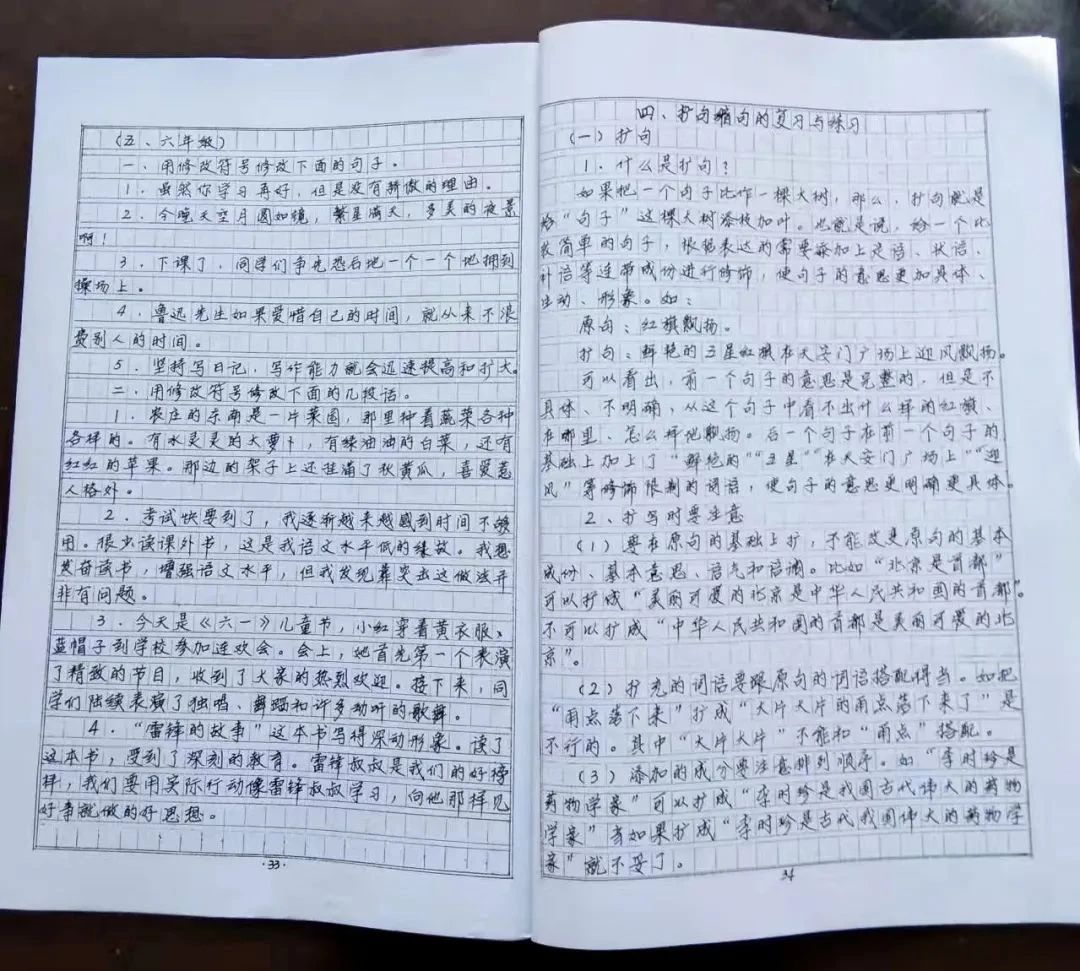 (五、六年级)
一、用修改符号修改下面的句子。
1.虽然你学习再好，但是没有骄傲的理由。
2.今晚天空月圆如镜，繁星满天，多美的夜景
啊！
3.下课了，同学们争先恐后地一个一个地拥到
操场上。
4.鲁迅先生如果爱惜自己的时间，就从来不浪
费别人的时间。
5.坚持写日记，写作能力就会迅速提高和扩大。
二、用修改符号修改下面的几段话。
1.农庄的东南是一片菜园，那里种着蔬菜各种
各样的。有水灵灵的大萝卜，有绿油油的白菜，还有
红红的苹果。那边的架子上还挂满了秋黄瓜，喜爱惹
人格外。
2.考试快要到了，我逐渐越来越感到时间不够
用。很少读课外书，这是我语文水平低的缘故。我想
发奋读书，增强语文水平，但我发现靠突击这做法并
非有问题。
3.今天是《六一》儿童节，小红穿着黄衣服、
蓝帽子到学校参加连欢会。会上，她首先第一个表演
了精致的节目，收到了大家的热烈欢迎。接下来，同
学们陆续表演了独唱、舞蹈和许多动听的歌舞。
4.“雷锋的故事”这本书写得深动形象。读了
这本书，受到了深刻的教育。雷锋叔叔是我们的好榜
样，我们要用实际行动像雷锋叔叔学习，向他那样见
好事就做的好思想。
·33·
四、扩句缩句的复习与练习
(一)扩句
1.什么是扩句？
如果把一个句子比作一棵大树，那么，扩句就是
给“句子”这棵大树添枝加叶。也就是说，给一个比
较简单的句子，根据表达的需要添加上定语、状语、
补语等连带成份进行修饰，使句子的意思更加具体、
生动、形象。如：
原句：红旗飘扬。
扩句：鲜艳的五星红旗在天安门广场上迎风飘扬。
可以看出，前一个句子的意思是完整的，但是不
具体、不明确，从这个句子中看不出什么样的红旗、
在哪里、怎么样地飘扬。后一个句子在前一个句子的
基础上加上了“鲜艳的”“五星”“在天安门广场上”“迎
风”等修饰限制的词语，使句子的意思更明确更具体。
2、扩写时要注意
(1)要在原句的基础上扩，不能改变原句的基本
成份、基本意思、语气和语调。比如“北京是首都”
可以扩成“美丽可爱的北京是中华人民共和国的首都”。
不可以扩成“中华人民共和国的首都是美丽可爱的北
京”。
(2)扩充的词语要跟原句的词语搭配得当。如把
“雨点落下来”扩成“大片大片的雨点落下来了”是
不行的。其中“大片大片”不能和“雨点”搭配。
(3)添加的成分要注意排列顺序。如“李时珍是
药物学家”可以扩成“李时珍是我国古代伟大的药物
学家”如果扩成“李时珍是古代我国伟大的药物学
家”就不妥了。
34